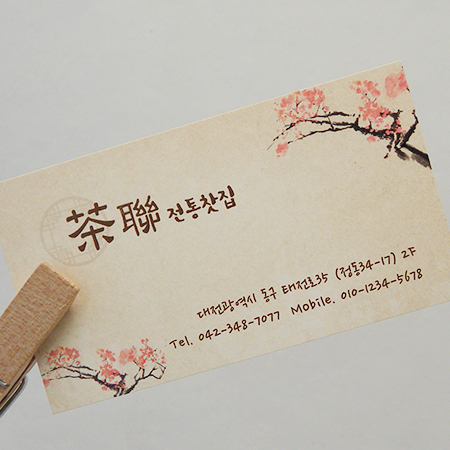 茶聯 전통찻집
대전광역시 동구 태전로35 (정동34-17) 2F
Tel. 042-348-7077 Mobile. 010-1234-5678